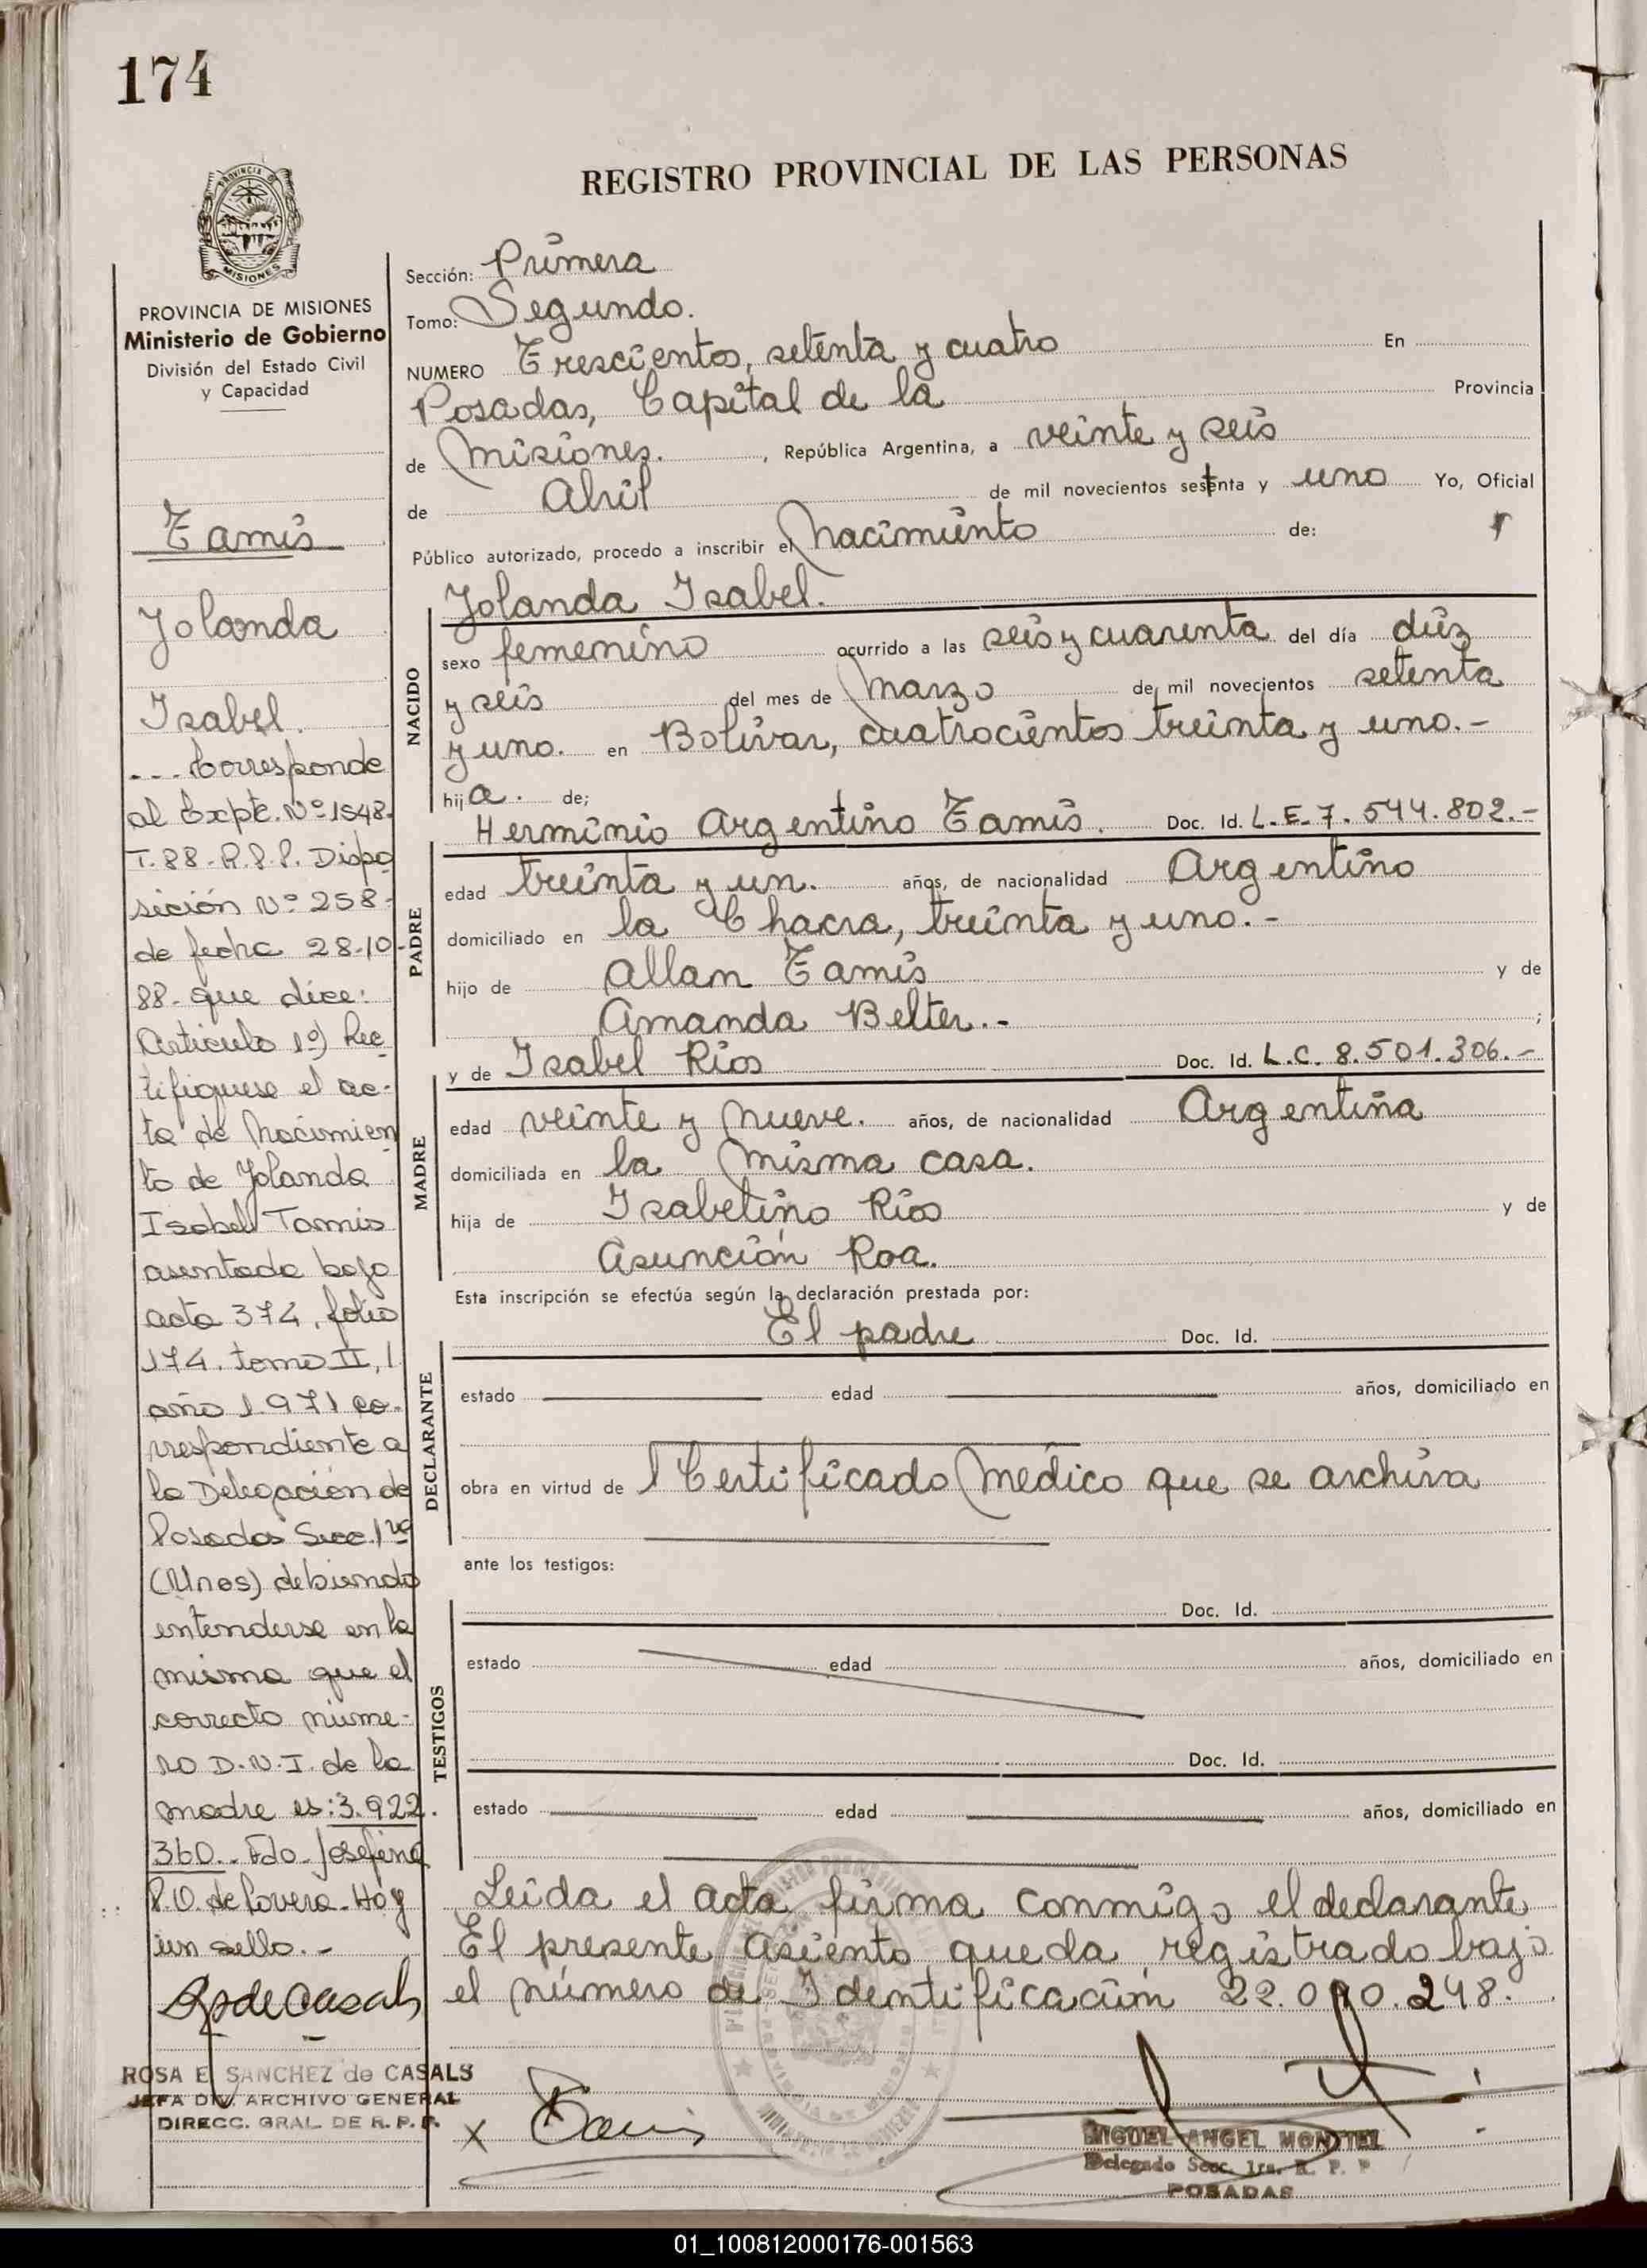 174
REGISTRO PROVINCIAL DE LAS PERSONAS
PROVINCIA DE MISIONES
Ministerio de Gobierno
División del Estado Civil
y Capacidad
Tamis
Yolanda
Isabel.
--- Corresponde
al Expte. Nº 1548.
T.88-R.P.P. Dispo
sición Nº 258-
de fecha 28-10-
88- que dice:
Artículo 1º) Rec
tifiquese el ac-
ta de Nacimien
to de Yolanda
Isabel Tamis
asentada bajo
acta 374, folio
174. tomo II,
año 1971 co-
rrespondiente a
la Delegación de
Posadas Secc. 1ra
(Mnes) debiendo
entenderse en la
misma que el
correcto núme-
ro D.N.I. de la
madre es: 3.922.
360.- Fdo. Josefina
P.O. de Lovera- Hay
un sello.-
ROSA E. SANCHEZ de CASALS
JEFA DIV. ARCHIVO GENERAL
DIRECC. GRAL. DE R. P. P.
Sección: Primera
Tomo: Segundo.
NUMERO Trescientos, setenta y cuatro En
Posadas, Capital de la Provincia
de Misiones. , República Argentina, a veinte y seis
de Abril de mil novecientos setenta y uno Yo, Oficial
Público autorizado, procedo a inscribir el Nacimiento de:
Yolanda Isabel.
NACIDO
sexo femenino ocurrido a las seis y cuarenta del día diez
y seis del mes de Marzo de mil novecientos setenta
y uno. en Bolivar, cuatrocientos treinta y uno.-
hija. de;
Herminio Argentino Tamis. Doc. Id. L.E. 7.544.802.-
PADRE
edad treinta y un. años, de nacionalidad Argentino
domiciliado en la Chacra, treinta y uno.-
hijo de Allan Tamis y de
Amanda Belter.- ;
y de Isabel Rios Doc. Id. L.C. 8.501.306.-
MADRE
edad veinte y Nueve. años, de nacionalidad Argentina
domiciliada en la Misma casa.
hija de Isabelino Rios y de
Asunción Roa.
Esta inscripción se efectúa según la declaración prestada por:
El padre Doc. Id.
DECLARANTE
estado edad años, domiciliado en
obra en virtud de Certificado Médico que se archiva
ante los testigos:
Doc. Id.
TESTIGOS
estado edad años, domiciliado en
Doc. Id.
estado edad años, domiciliado en
Leida el acta firma conmigo el declarante
El presente asiento queda registrado bajo
el número de Identificación 22.090.248.
X Tamis
MIGUEL ANGEL MONTIEL
Delegado Secc. 1ra. R. P. P
POSADAS
01_100812000176-001563